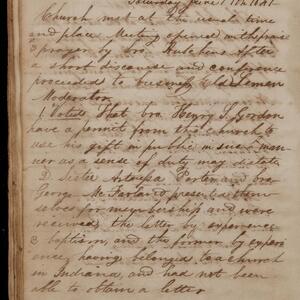 Saturday June 1841
Church met at the usual time
and place Meeting opened with praise
& prayer by bro. Hutchens After
a short discourse and conference
proceeded to business Eld Lemen
Moderator
1. Voted That bro. Henry S. Gordon
have a permit from this church to
use his gift in public in such a man-
ner as a sense of duty may dictate
2. Sister Artnesa Porter and bro
George McFarland presented them
selves for membership and were
received, the letter by experience
& baptism, and the former by experi
ence, having belonged to a church
in Indiana, and had not been
able to obtain a letter